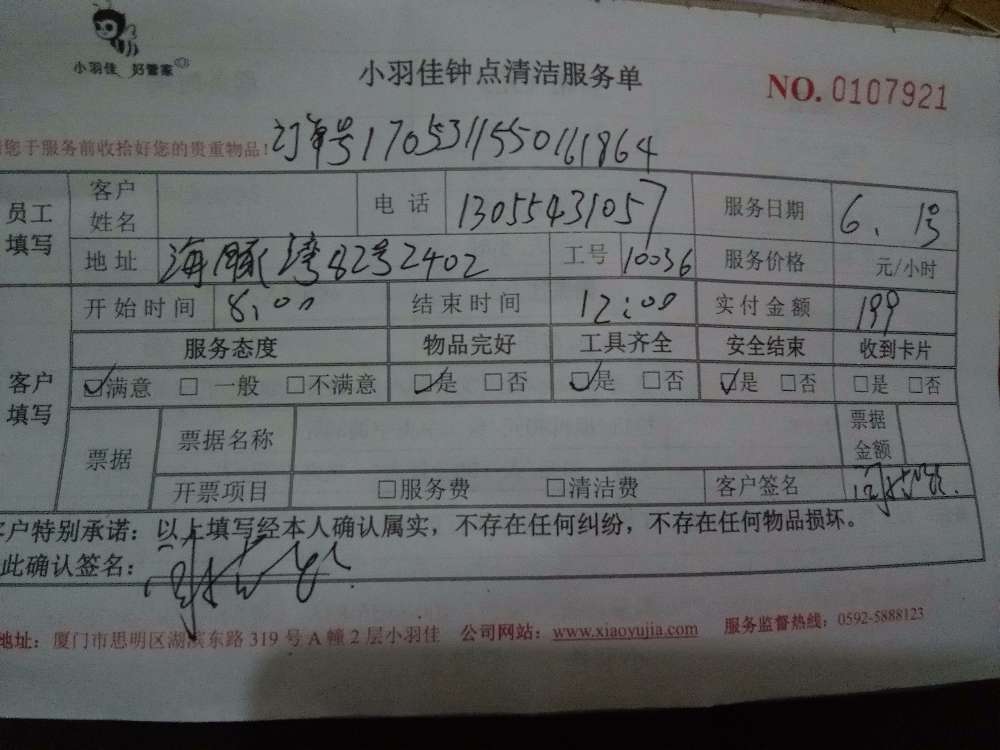 小羽佳 好管家
小羽佳钟点清洁服务单
NO. 0107921
您于服务前收拾好您的贵重物品!
订单号1705311550161864
员工填写
客户姓名
电话 13055431057
服务日期 6. 1号
地址 海豚湾82号2402
工号 10036
服务价格 元/小时
客户填写
开始时间 8:00
结束时间 12:00
实付金额 199
服务态度 物品完好 工具齐全 安全结束 收到卡片
☑满意 □一般 □不满意 ☑是 □否 ☑是 □否 ☑是 □否 □是 □否
票据
票据名称
票据金额
开票项目 □服务费 □清洁费 客户签名
客户特别承诺：以上填写经本人确认属实，不存在任何纠纷，不存在任何物品损坏。
此确认签名：
地址：厦门市思明区湖滨东路 319 号 A 幢 2 层小羽佳 公司网站：www.xiaoyujia.com 服务监督热线：0592-5888123